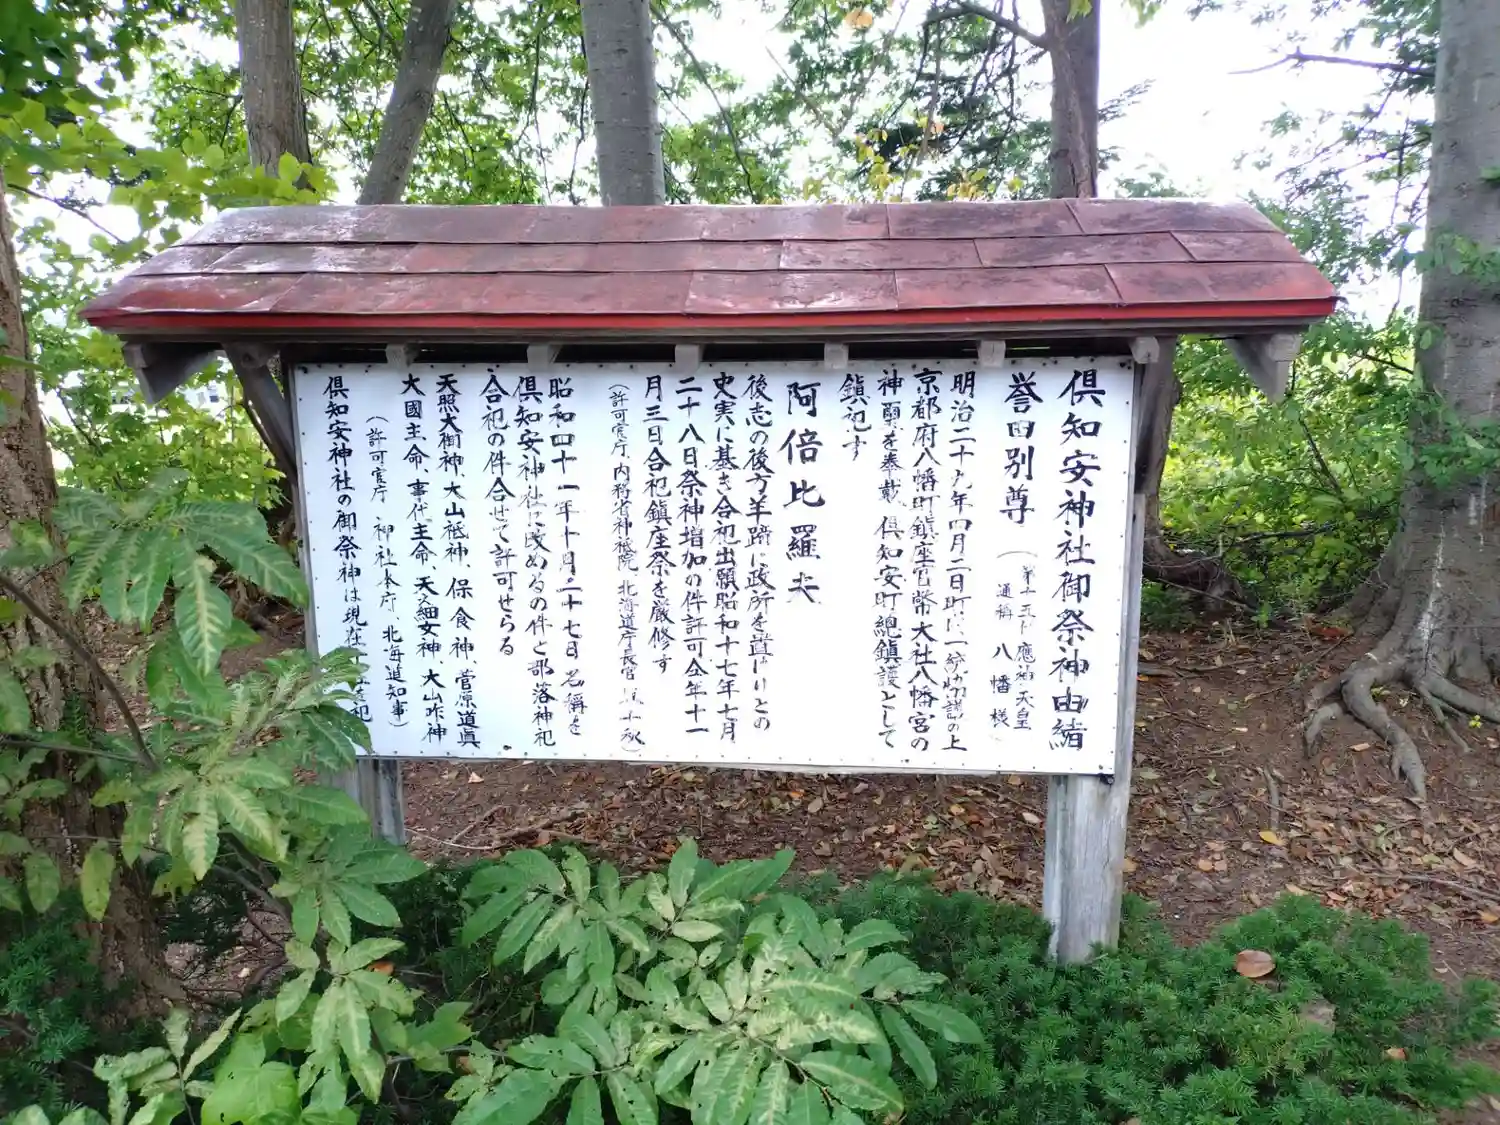 倶知安神社御祭神由緒
誉田別尊
(第十五代 應神天皇
通称 八幡様)
明治二十九年四月二日町に一統協議の上
京都府八幡町鎮座官幣大社八幡宮の
神璽を奉戴、倶知安町總鎮護として
鎮祀す
阿倍比羅夫
後志の後方羊蹄に政所を置けりとの
史実に基き合祀出願昭和十七年七月
二十八日祭神増加の件許可仝年十一
月三日合祀鎮座祭を厳修す
(許可官庁、内務省神祇院、北海道庁長官
昭和四十一年十月二十七日 名稱を
倶知安神社に改めるの件と部落神祀
合祀の件合せて許可せらる
天照大御神、大山祗神、保食神、菅原道眞
大國主命、事代主命、天細女神、大山咋神
(許可官庁 神社本庁、北海道知事)
倶知安神社の御祭神は現在